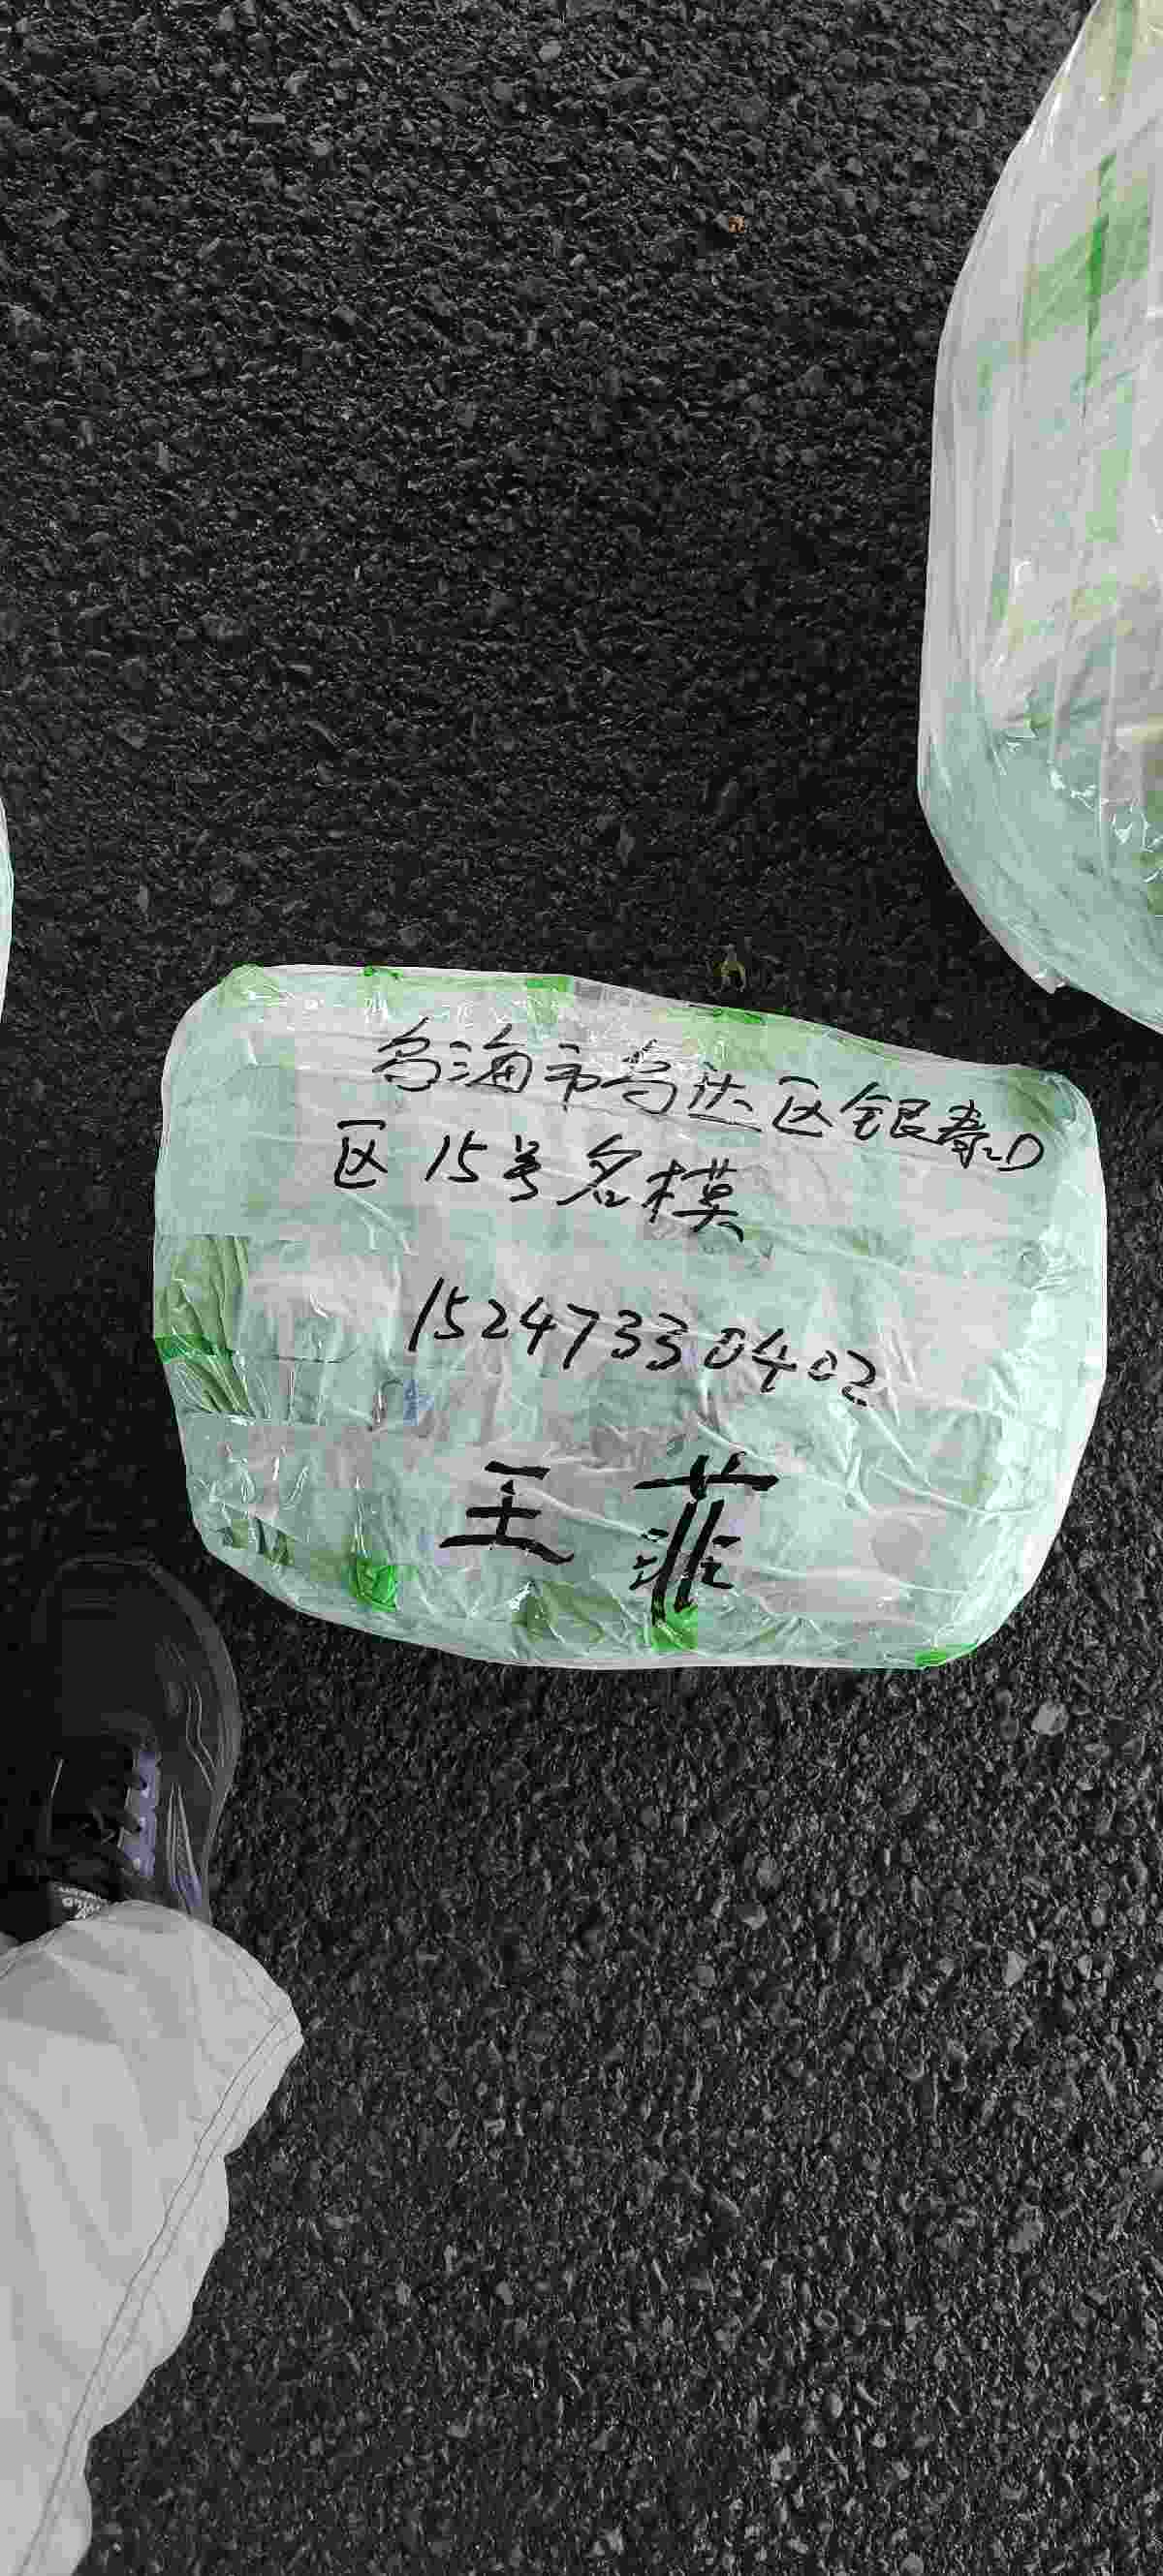 乌海市乌达区银泰D
区15号名模
15247330402
王菲